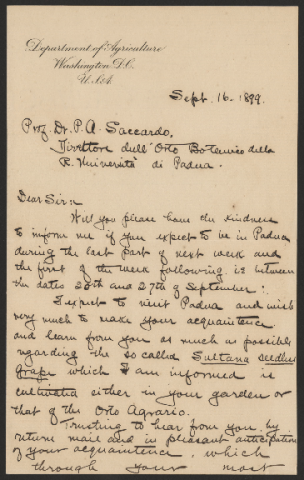 Department of Agriculture
Washington D.C.
U.S.A.
Sept. 16. 1899.
Prof. Dr. P. A. Saccardo,
Direttore dell' Orto Botanico della
R. Università di Padua.
Dear Sir:
Will you please have the kindness
to inform me if you expect to be in Padua
during the last part of next week and
the first of the week following. i.e. between
the dates 20th and 27th of September?
I expect to visit Padua and wish
very much to make your acquaintence
and learn from you as much as possible
regarding the so called Sultana seedless
grape which I am informed is
cultivated either in your garden or
that of the Orto Agrario.
Trusting to hear from you by
return mail and in pleasant anticipation
of your acquaintence, which
through your most